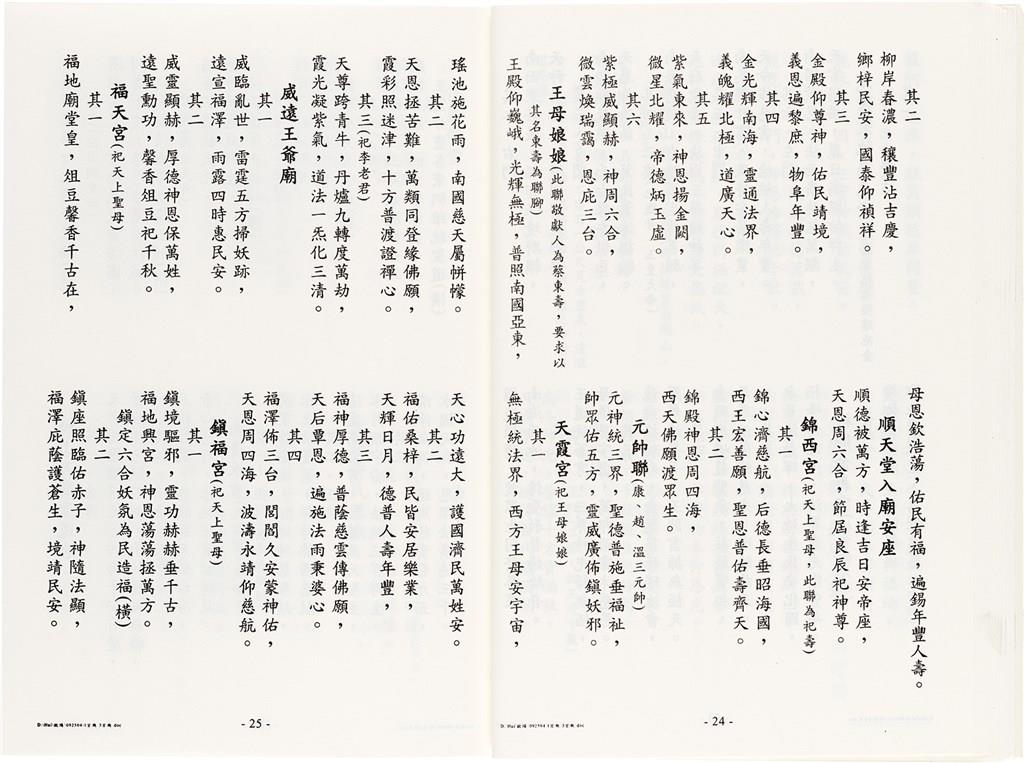 其二
柳岸春濃，穰豐沾吉慶，
鄉梓民安，國泰仰禎祥。
其三
金殿仰尊神，佑民靖境，
義恩遍黎庶，物阜年豐。
其四
金光輝南海，靈通法界，
義魄耀北極，道廣天心。
其五
紫氣東來，神恩揚金闕，
微星北耀，帝德炳玉虛。
其六
紫極威顯赫，神周六合，
微雲煥瑞靄，恩庇三台。
王母娘娘(此聯敬獻人為蔡東壽，要求以
其名東壽為聯腳)
王殿仰巍峨，光輝無極，普照南國亞東，
母恩欽浩蕩，佑民有福，遍錫年豐人壽。
順天堂入廟安座
順德被萬方，時逢吉日安帝座，
天恩周六合，節屆良辰祀神尊。
錦西宮(祀天上聖母，此聯為祀壽)
其一
錦心濟慈航，后德長垂昭海國，
西王宏善願，聖恩普佑壽齊天。
其二
錦殿神恩周四海，
西天佛願渡眾生。
元帥聯(康、趙、溫三元帥)
元神統三界，聖德普施垂福祉，
帥眾佑五方，靈威廣佈鎮妖邪。
天霞宮(祀王母娘娘)
其一
無極統法界，西方王母安宇宙，
- 24 -
瑤池施花雨，南國慈天屬帡幪。
其二
天恩拯苦難，萬類同登緣佛願，
霞彩照迷津，十方普渡證禪心。
其三(祀李老君)
天尊跨青牛，丹爐九轉度萬劫，
霞光凝紫氣，道法一炁化三清。
威遠王爺廟
其一
威臨亂世，雷霆五方掃妖跡，
遠宣福澤，雨露四時惠民安。
其二
威靈顯赫，厚德神恩保萬姓，
遠聖勳功，馨香俎豆祀千秋。
福天宮(祀天上聖母)
其一
福地廟堂皇，俎豆馨香千古在，
天心功德大，護國濟民萬姓安。
其二
福佑桑梓，民皆安居樂業，
天輝日月，德普人壽年豐，
其三
福神厚德，普蔭慈雲傳佛願，
天后覃恩，遍施法雨秉婆心。
其四
福澤佈三台，閭閻久安蒙神佑，
天恩周四海，波濤永靖仰慈航。
鎮福宮(祀天上聖母)
其一
鎮境驅邪，靈功赫赫垂千古，
福地興宮，神恩蕩蕩拯萬方。
鎮定六合妖氛為民造福(橫)
其二
鎮座照臨佑赤子，神隨法顯，
福澤庇蔭護蒼生，境靖民安。
- 25 -